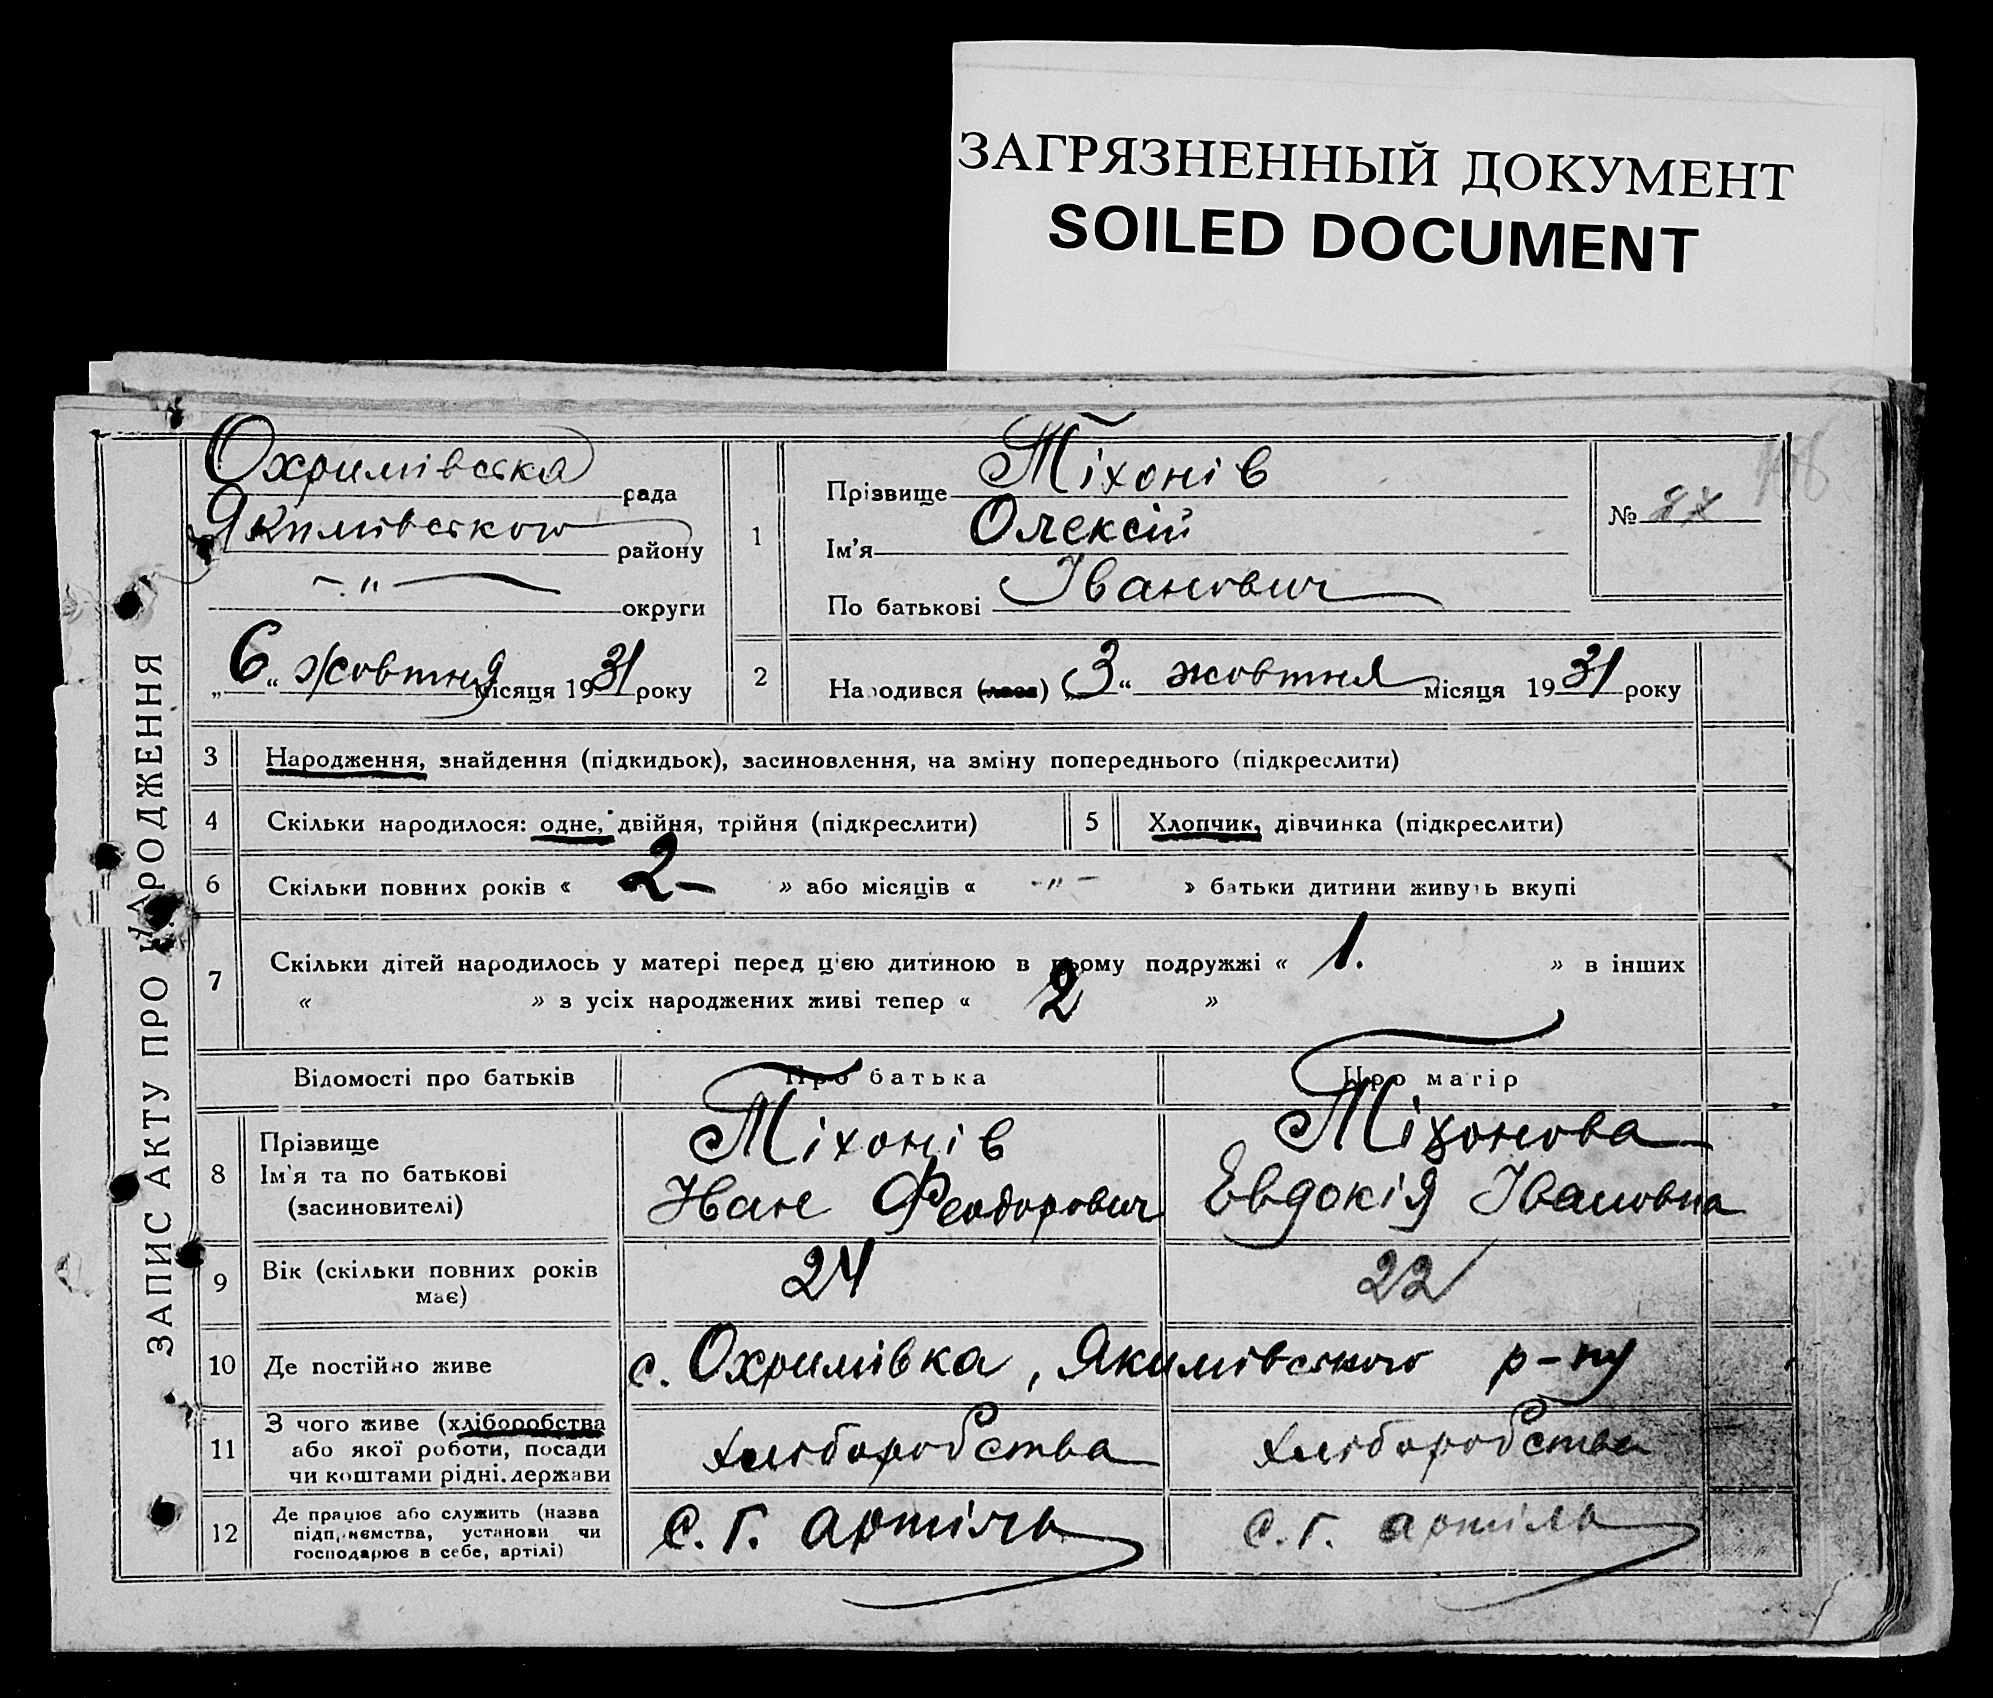 ЗАГРЯЗНЕННЫЙ ДОКУМЕНТ
SOILED DOCUMENT
ЗАПИС АКТУ ПРО НАРОДЖЕННЯ
Охримівська рада
Якимівського району
-„- округи
„6“ жовтня місяця 1931 року
1
Прізвище Тіхонів
Ім'я Олексій
По батькові Іванович
№ 27
2 Народився (лася) „3“ жовтня місяця 1931 року
3 Народження, знайдення (підкидьок), засиновлення, на зміну попереднього (підкреслити)
4 Скільки народилося: одне, двійня, трійня (підкреслити) 5 Хлопчик, дівчинка (підкреслити)
6 Скільки повних років « 2- » або місяців « -„- » батьки дитини живуть вкупі
7 Скільки дітей народилось у матері перед цією дитиною в цьому подружжі « 1. » в інших
« » з усіх народжених живі тепер « 2 »
Відомості про батьків Про батька Про матір
8 Прізвище Тіхонів Тіхонова
Ім'я та по батькові Іван Феодорович Евдокія Івановна
(засиновителі)
9 Вік (скільки повних років має) 24 22
10 Де постійно живе с. Охримівка, Якимівського р-ну
11 З чого живе (хліборобства хліборобства хліборобства
або якої роботи, посади
чи коштами рідні, держави
12 Де працює або служить (назва с. г. артіль с. г. артіль
підприємства, установи чи
господарює в себе, артілі)